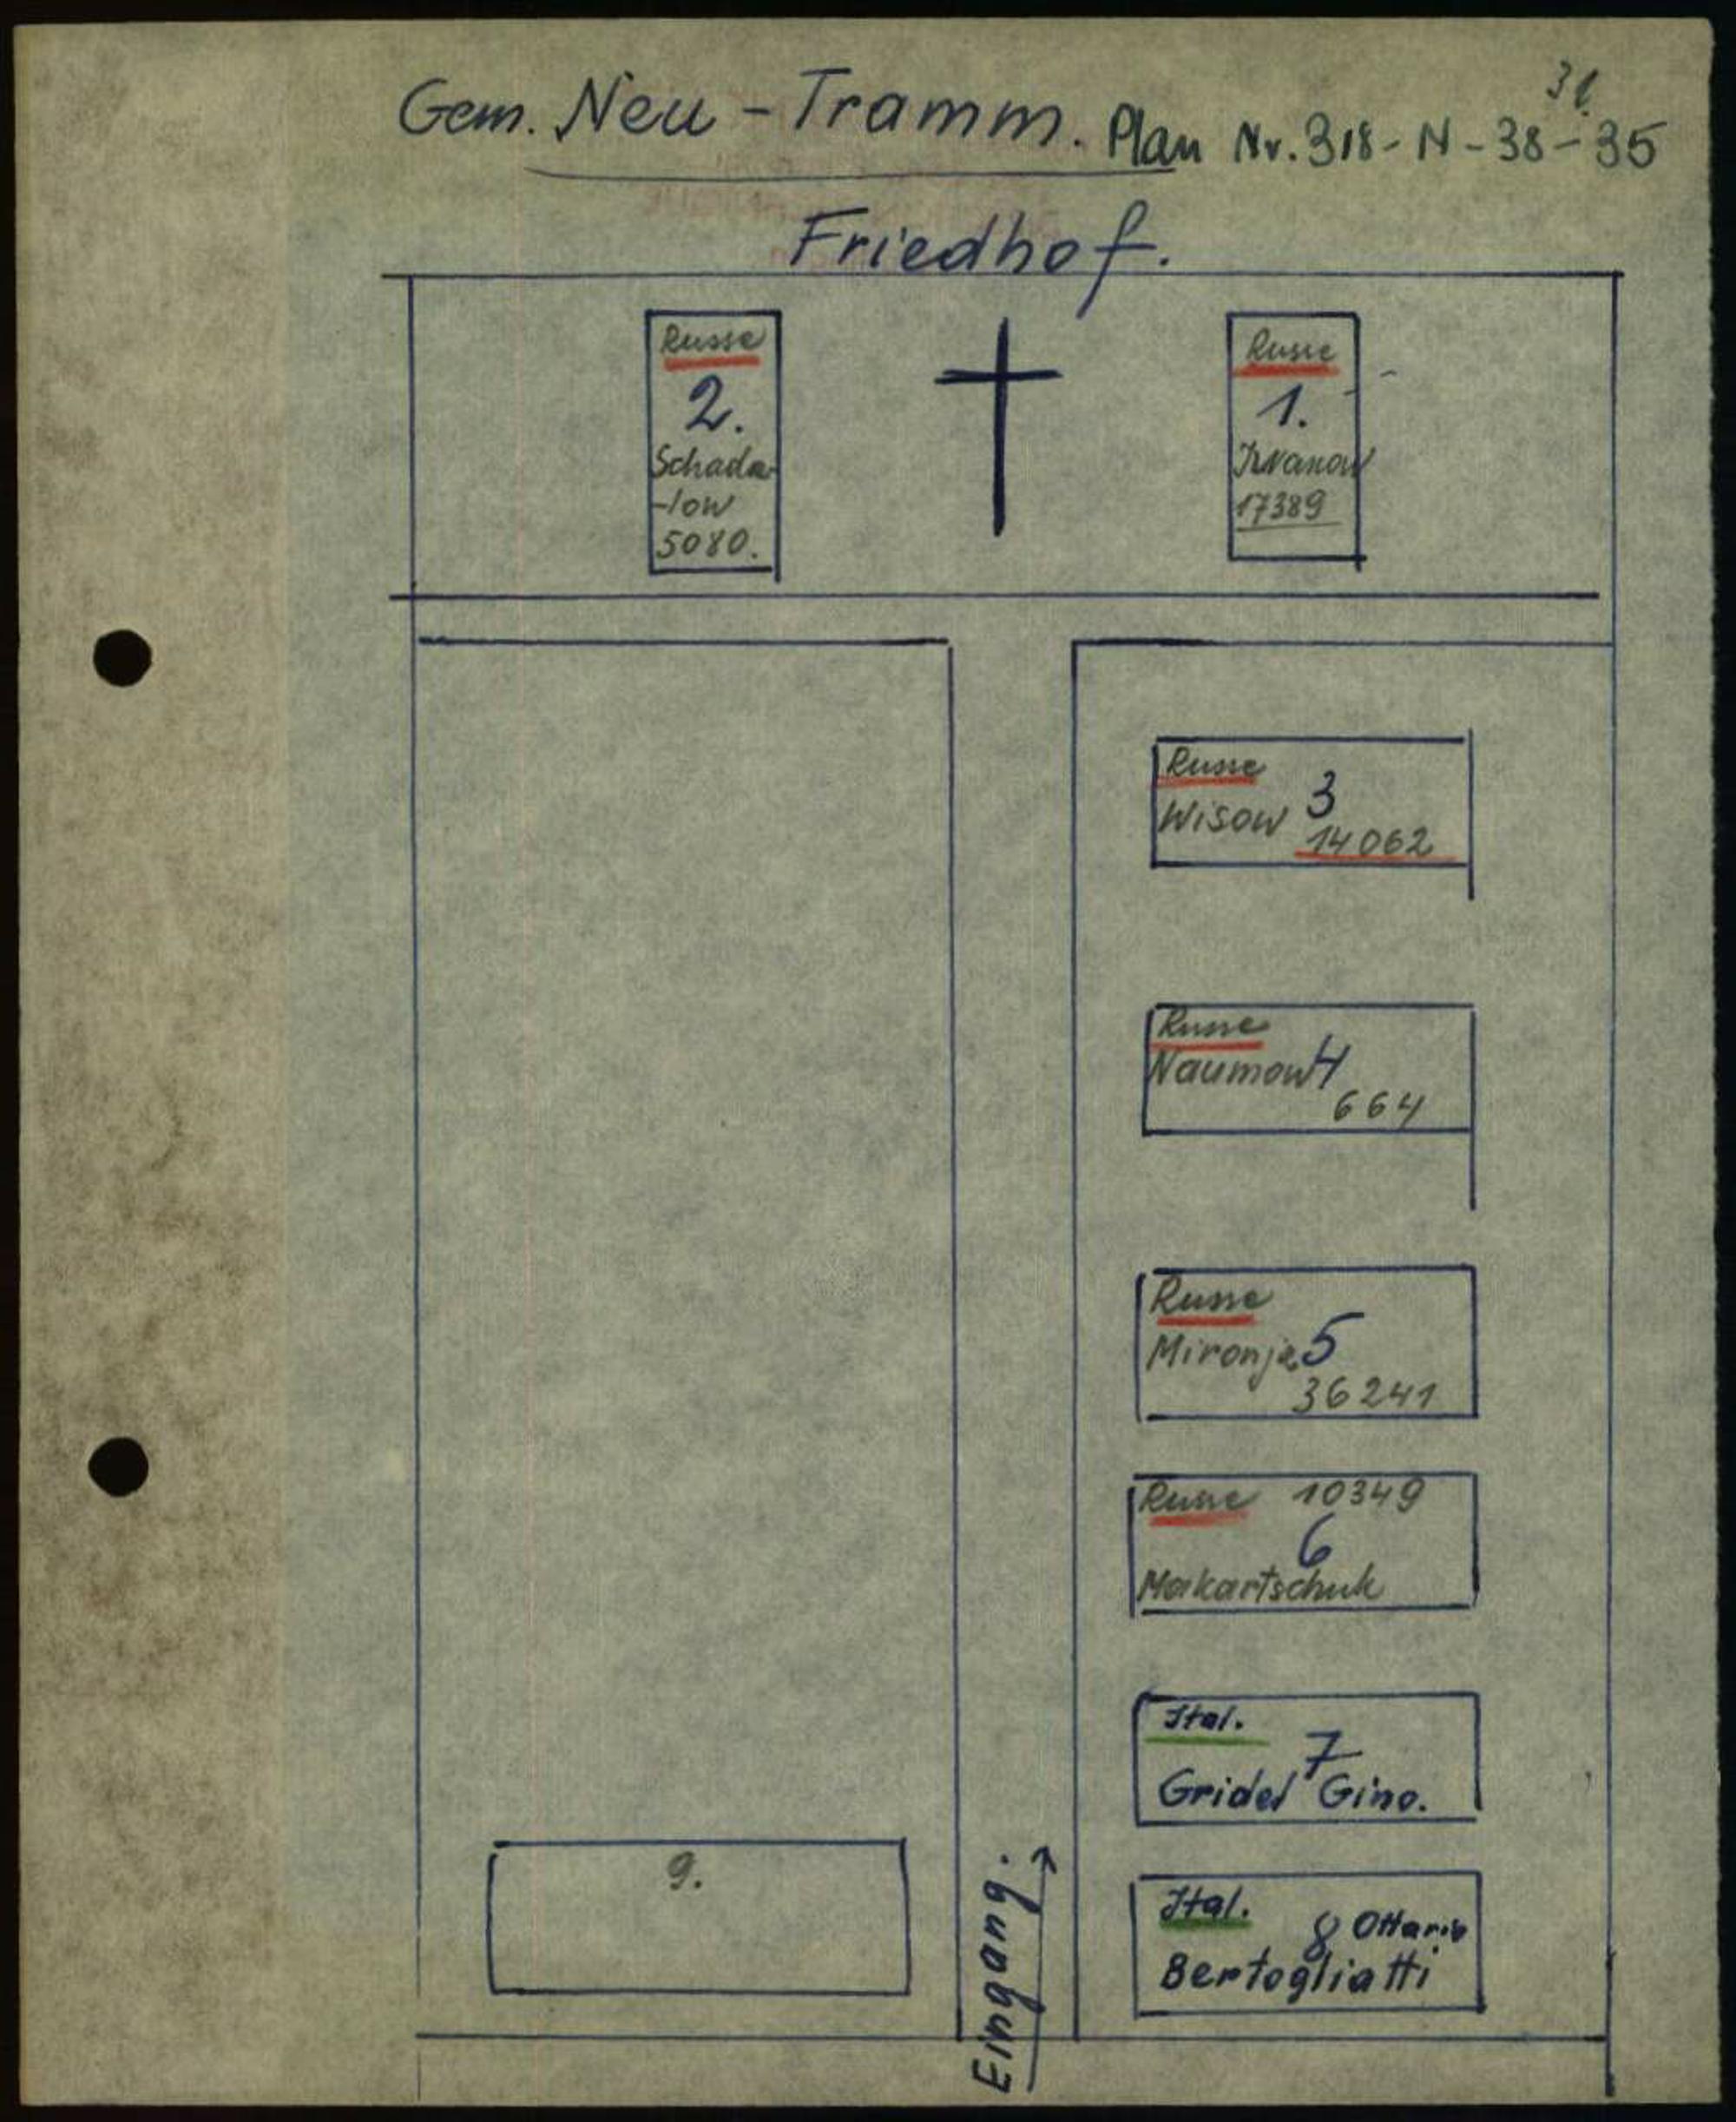 31
Gem. Neu-Tramm. Plan Nr. 318-N-38-35
Friedhof.
Russe
2.
Schada-
-low
5080.
Russe
1.
Iwanow
17389
Russe
3
Wisow
14062
Russe
Naumow 4
664
Russe
Mironja 5
36241
Russe 10349
6
Makartschuk
Ital.
7
Gridel Gino.
9.
Eingang.
Ital.
8 Ottario
Bertogliatti